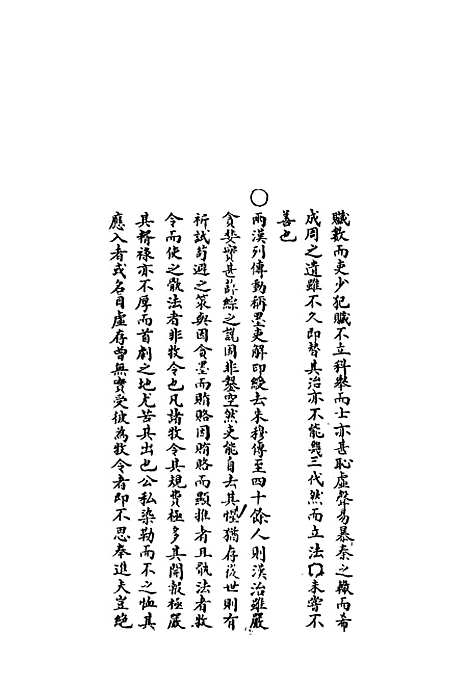 贓數而吏少犯贓不立科舉而士亦甚恥虛聲易暴秦之轍而希
成周之遺雖不久即替其治亦不能幾三代然而立法未嘗不
善也
○兩漢列傳動稱墨吏解印綬去朱穆傳至四十餘人則漢治雖嚴
貪婪實甚薛綜之說固非鑿空然吏能自去其慳猶存後世則有
祈試苟避之策與因貪墨而賄賂因賄賂而顯推者且執法者牧
令而使之骫法者非牧令也凡諸牧令其規費極多其開報極嚴
其俸祿亦不厚而首劇之地尤苦其出也公私染勒而不之恤其
應入者或名目虛存曾無實受彼為牧令者即不思奉進夫豈絶